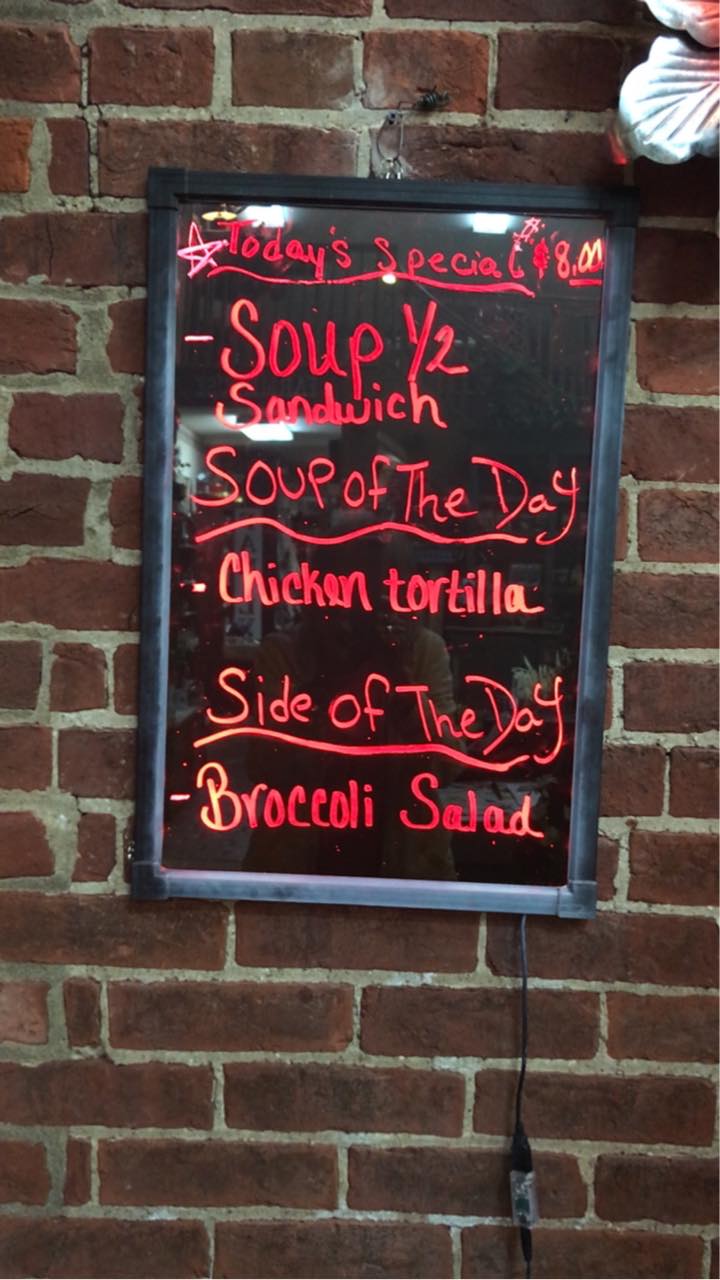 Today's Special $8.00
- Soup 1/2
Sandwich
Soup of The Day
- Chicken tortilla
Side of The Day
- Broccoli Salad